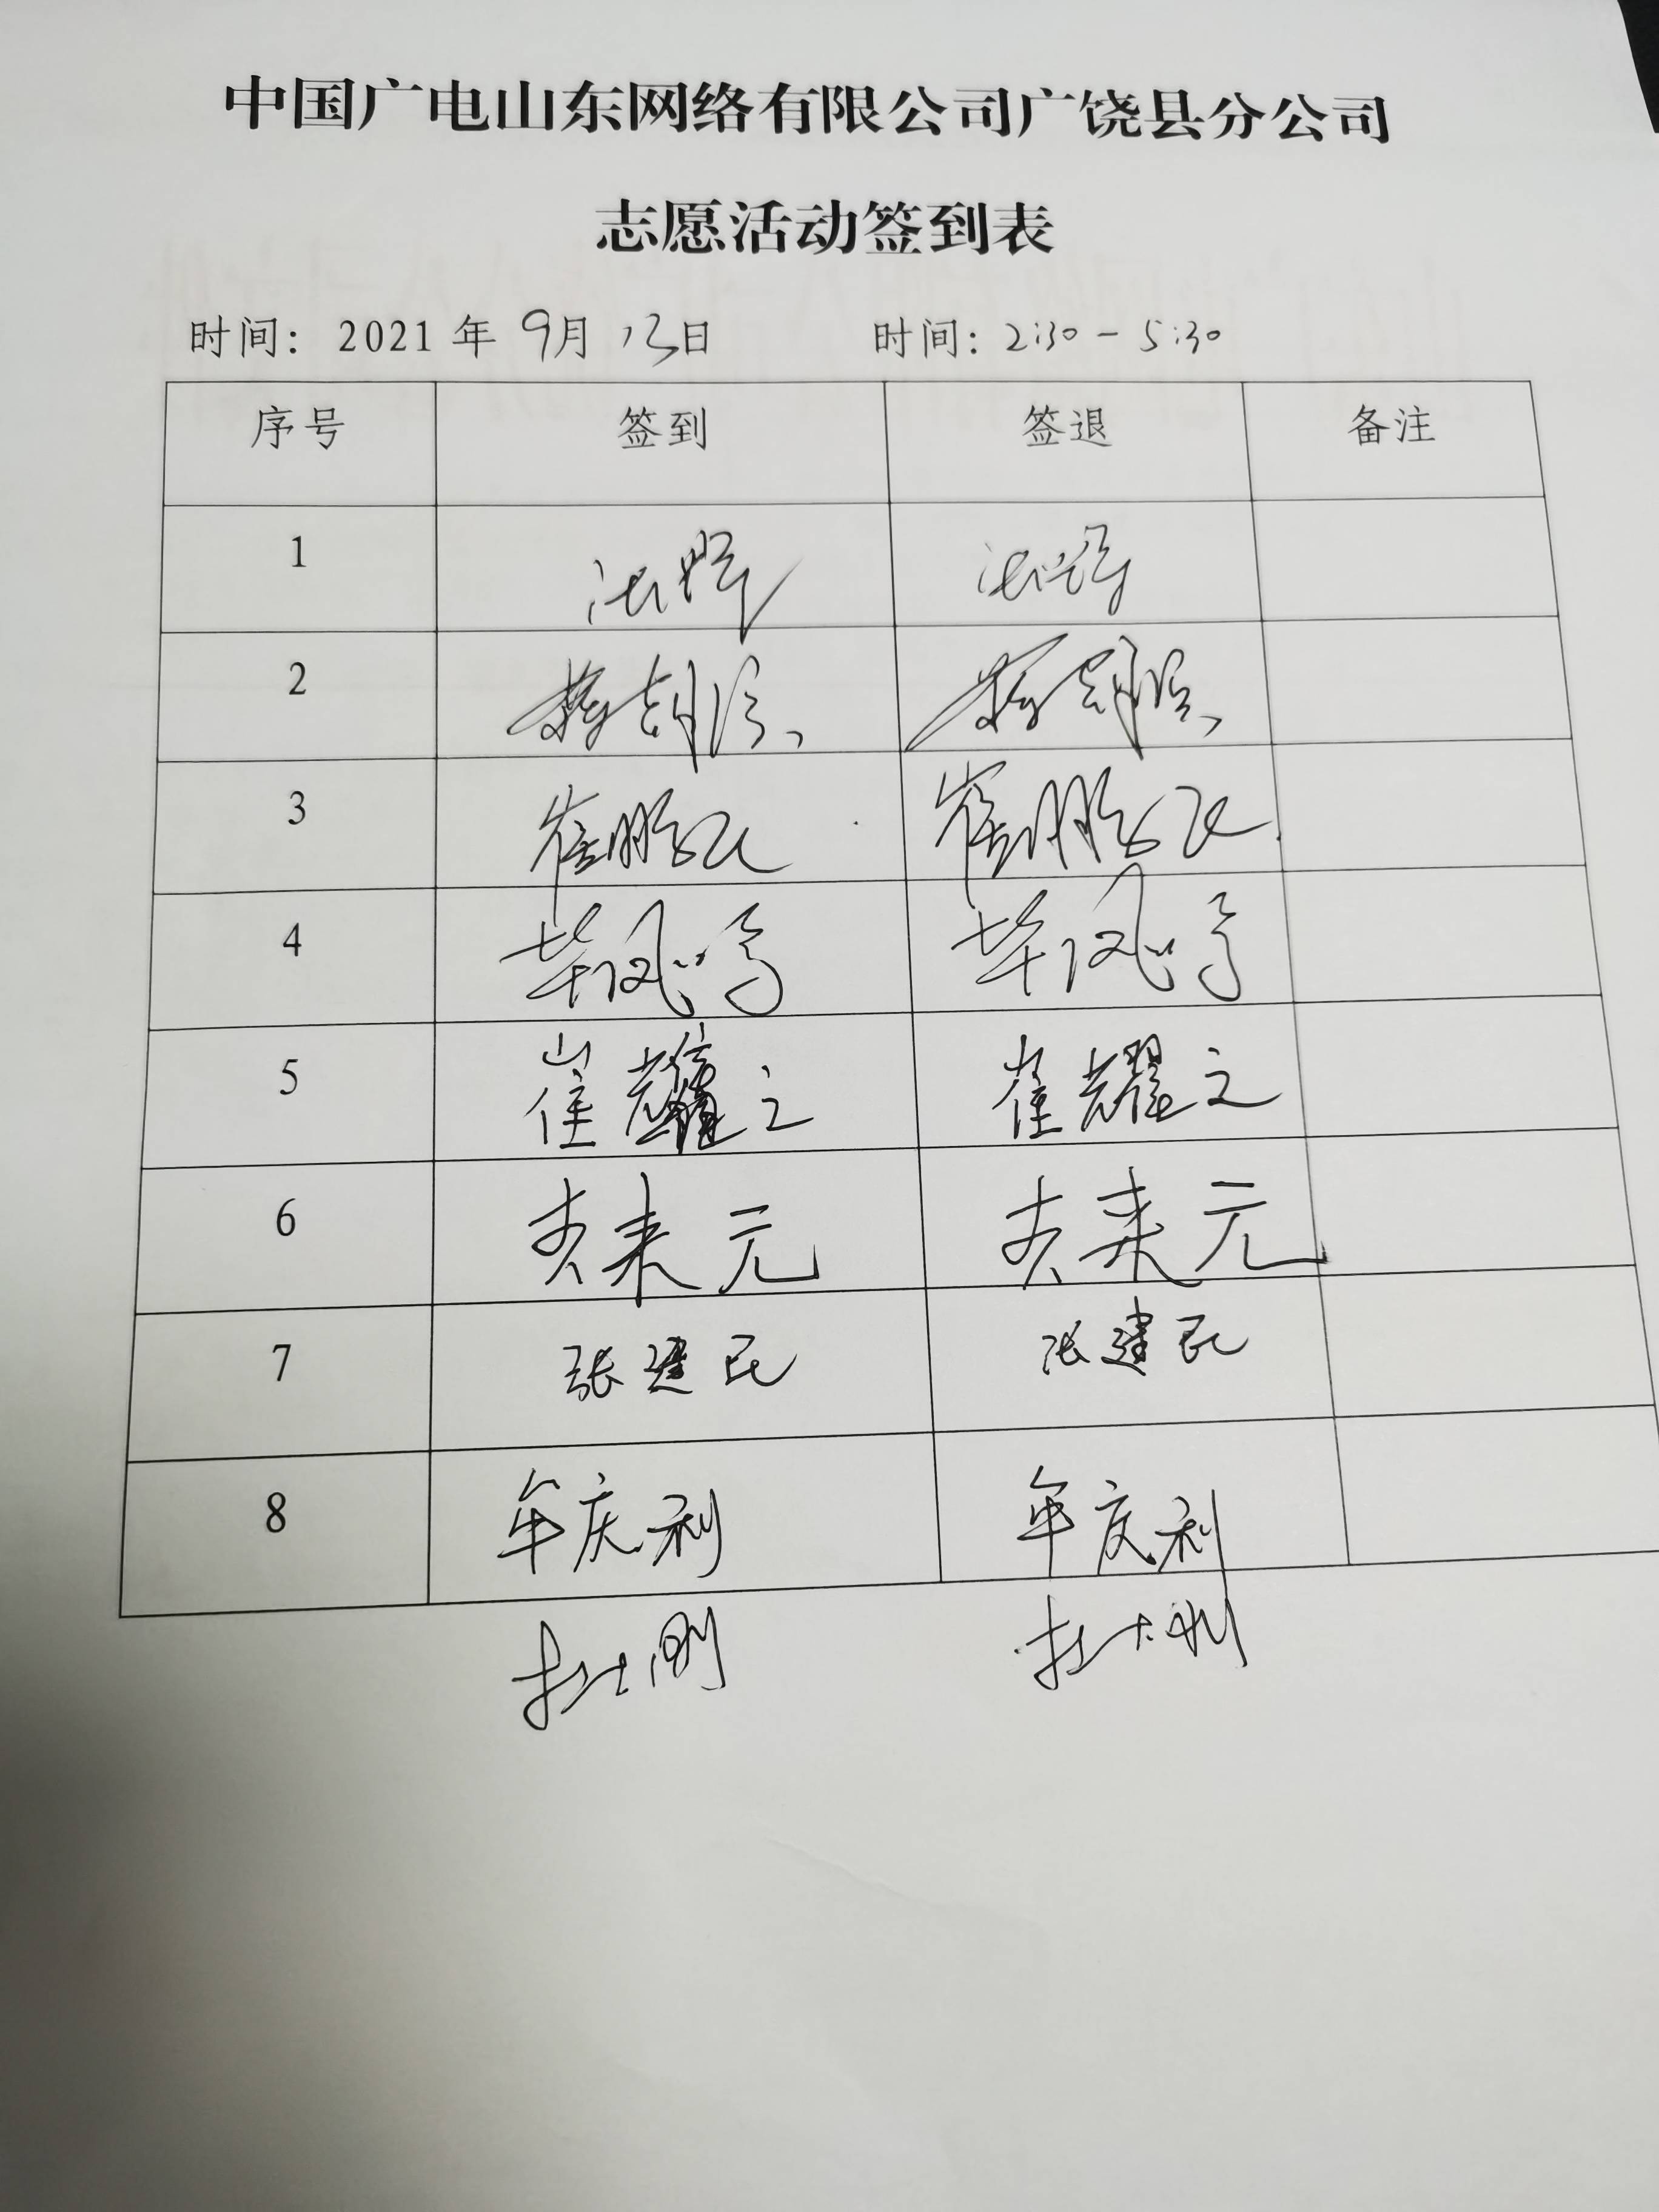 中国广电山东网络有限公司广饶县分公司
志愿活动签到表
时间：2021 年 9月 13日 时间：2:30 - 5:30
序号 签到 签退 备注
1
2
3 崔鹏飞 崔鹏飞
4 毕凤鸣 毕凤鸣
5 崔耀之 崔耀之
6 来元 来元
7 张建民 张建民
8 年庆利 年庆利
杜刚 杜刚